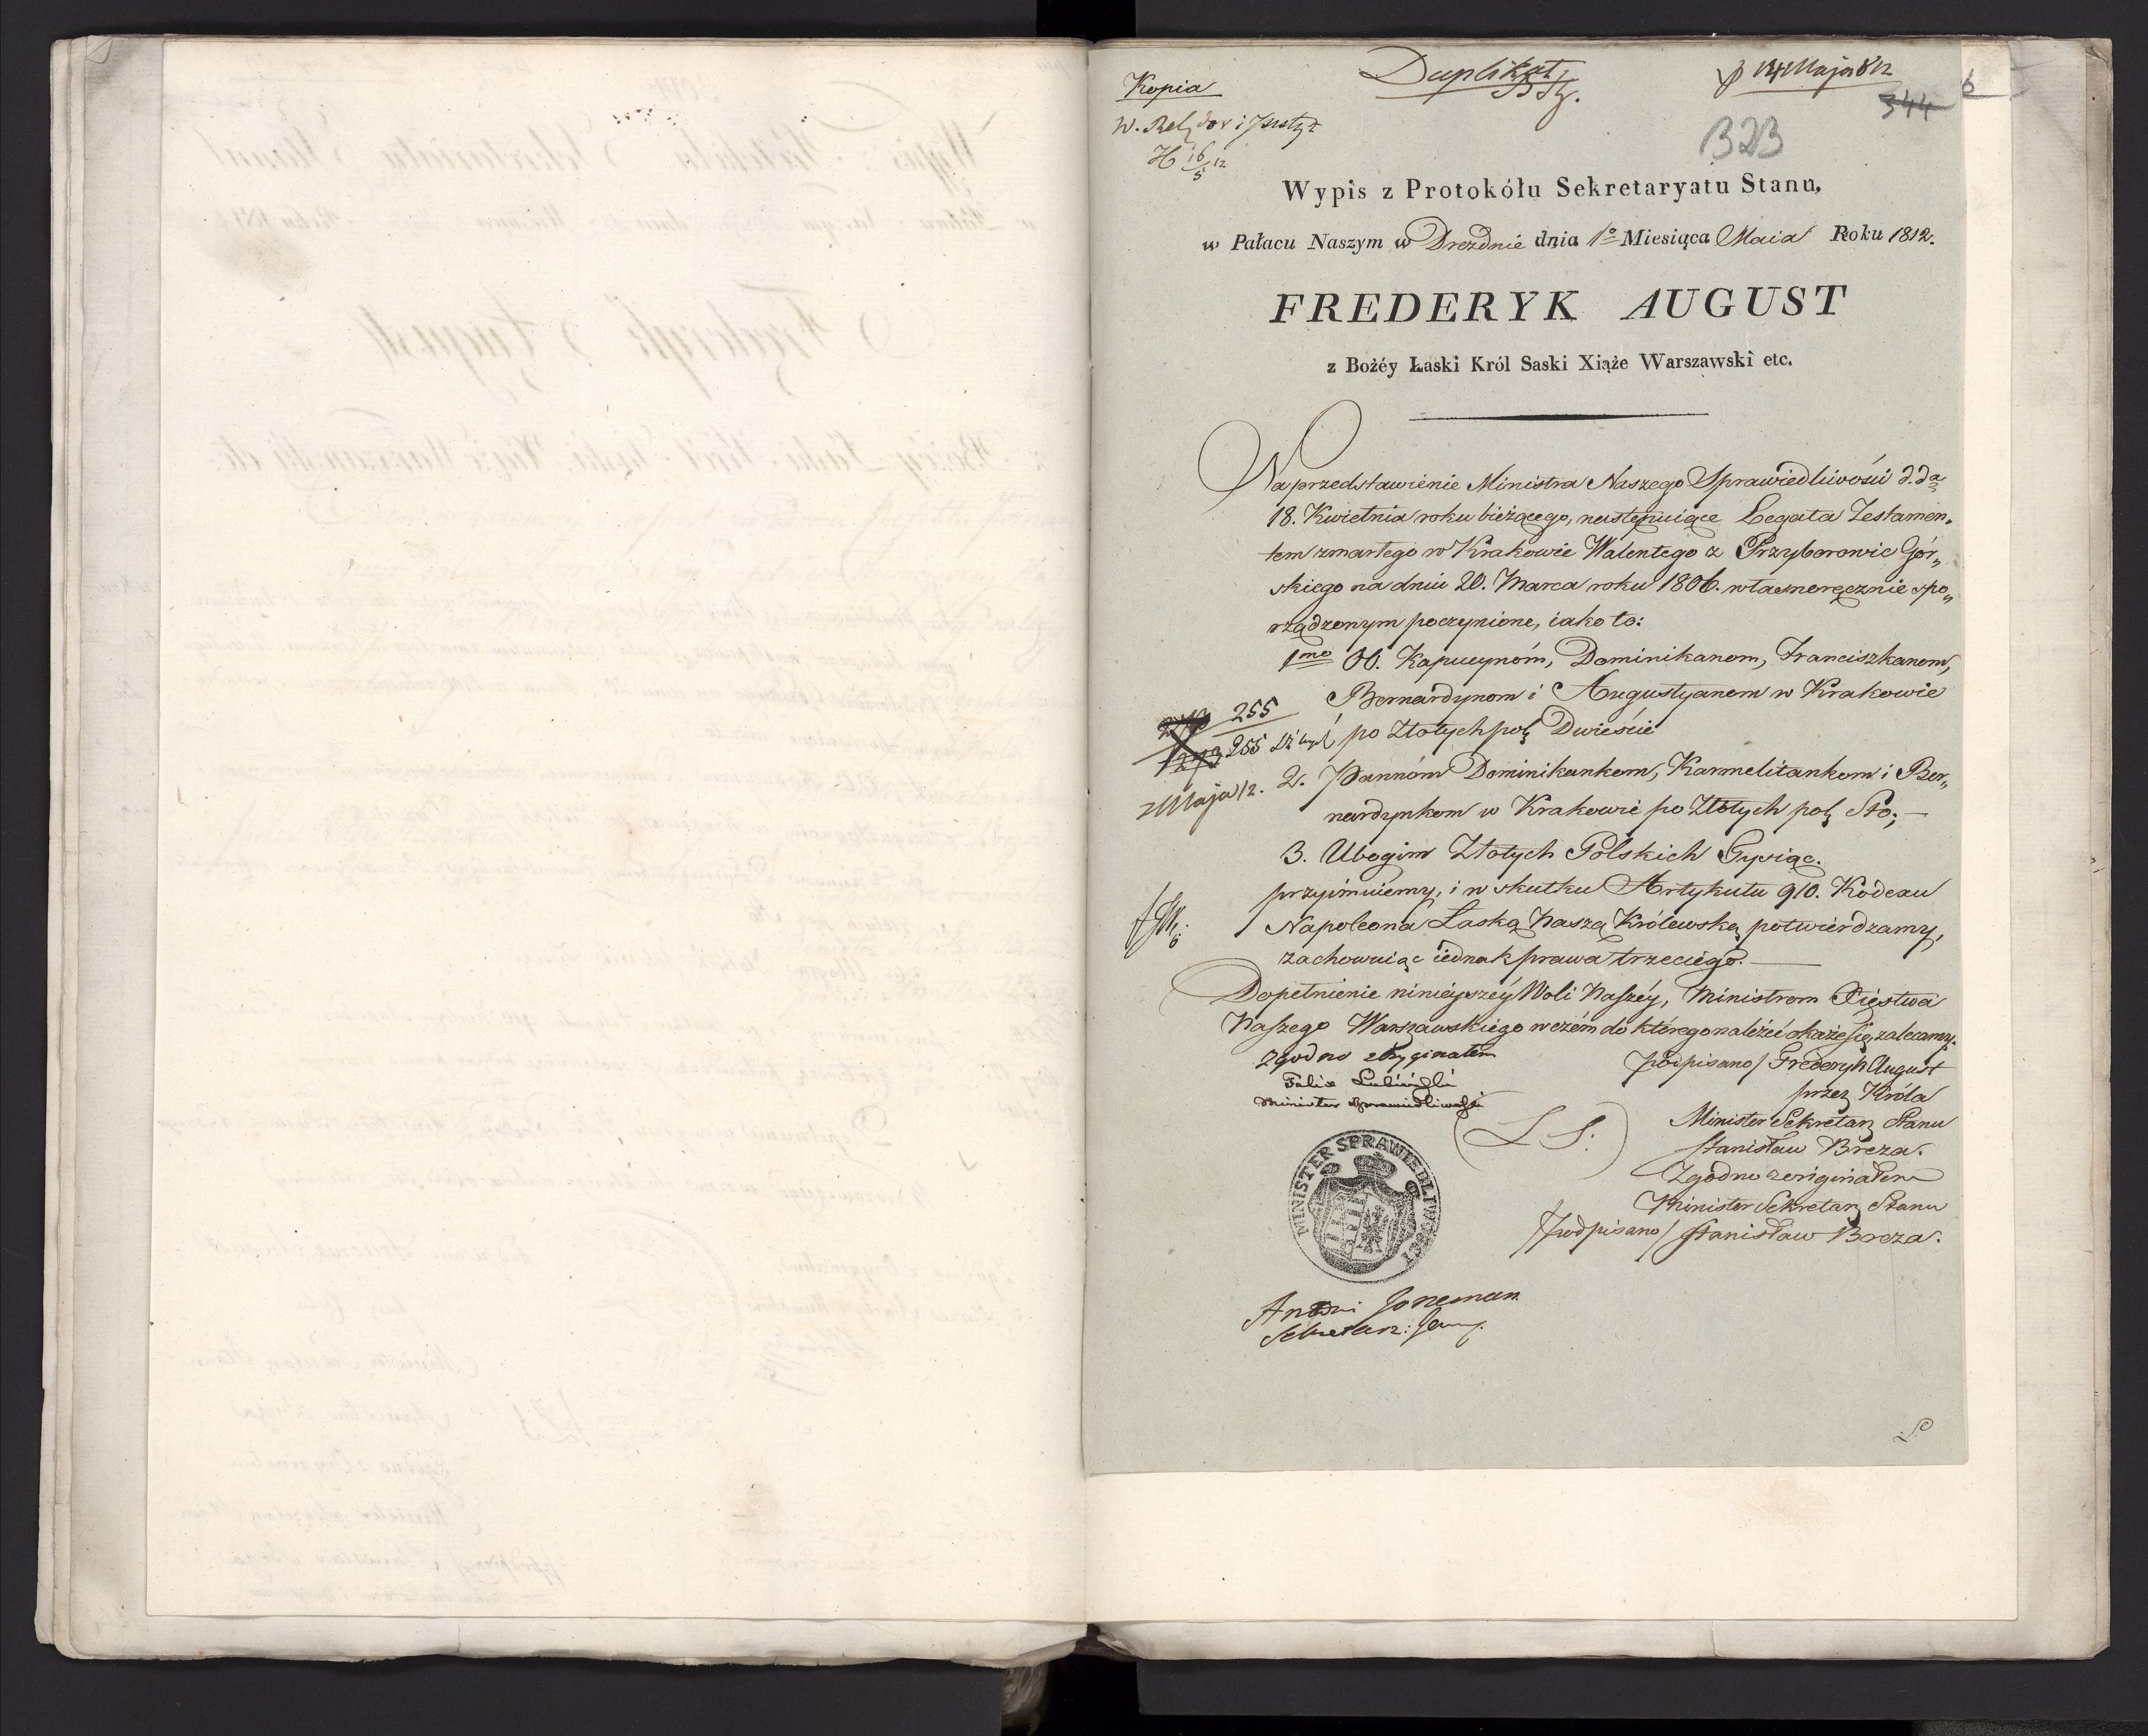 Kopia
Duplikat
14 Maja 812
344
6
W. Relig
H 16/5 12
323
Wypis z Protokółu Sekretaryatu Stanu,
w Pałacu Naszym w Dreznie dnia 1º Miesiąca Maia Roku 1812.
FREDERYK AUGUST
z Bożéy Łaski Król Saski Xiąże Warszawski etc.
Na przedstawienie Ministra Naszego Sprawiedliwości d. da
18. Kwietnia roku bieżącego, następuiące Legata Testamen„
tem zmarłego w Krakowie Walentego z Przyborowic Gór„
skiego na dniu 20. Marca roku 1806. własnoręcznie spo„
rządzonym poczynione, iako to:
1mo OO. Kapucynóm, Dominikanom, Franciszkanom,
Bernardynom i Augustyanom w Krakowie
po Złotych pol. Dwieście
255
255
2 Maja 12.
2. Pannóm Dominikankom, Karmelitankom i Ber„
nardynkom w Krakowie po Złotych pol. Sto; —
3. Ubogim Złotych Polskich Tysiąc.
przyimuiemy, i w skutku Artykułu 910. Kodexu
Napoleona Łaską Naszą Królewską potwierdzamy,
zachowuiąc iednak prawa trzeciego. —
Dopełnienie ninieyszéy Woli Naszéy, Ministrom Xięstwa
Naszego Warszawskiego w czém do którego należéć okaże się, zalecamy.
Zgodno z Orygınałem
Felix Łubieński
Minister Sprawiedliwości
podpisano/ Frederyk August
przez Króla
Minister Sekretarz Stanu
Stanisław Breza.
(L S:)
Zgodno z originałem
Minister Sekretarz Stanu
/podpisano/ Stanisław Breza.
MINISTER SPRAWIEDLIWOŚCI
Sekretarz: Jen.